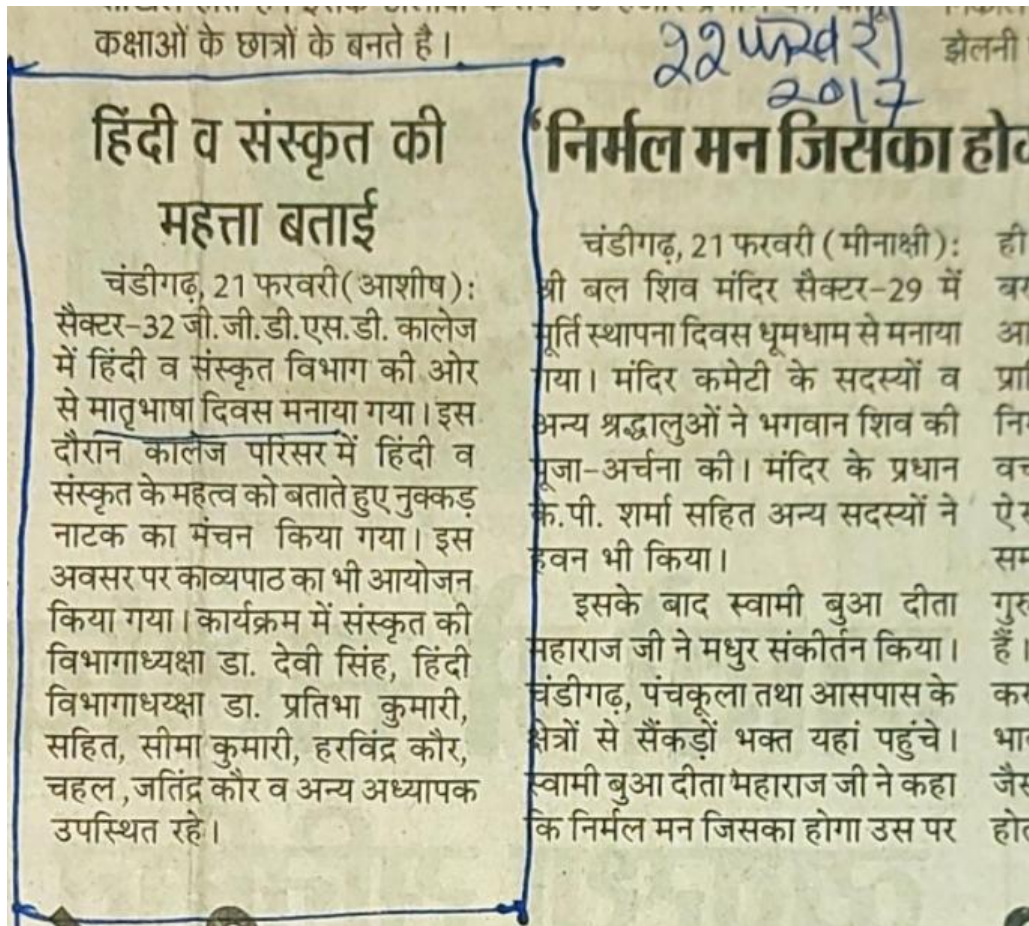 कक्षाओं के छात्रों के बनते है।
झेलनी
22 फरवरी
2017
हिंदी व संस्कृत की
महत्ता बताई
चंडीगढ़, 21 फरवरी(आशीष):
सैक्टर-32 जी.जी.डी.एस.डी. कालेज
में हिंदी व संस्कृत विभाग की ओर
से मातृभाषा दिवस मनाया गया। इस
दौरान कालेज परिसर में हिंदी व
संस्कृत के महत्व को बताते हुए नुक्कड़
नाटक का मंचन किया गया। इस
अवसर पर काव्यपाठ का भी आयोजन
किया गया। कार्यक्रम में संस्कृत की
विभागाध्यक्षा डा. देवी सिंह, हिंदी
विभागाधय्क्षा डा. प्रतिभा कुमारी,
सहित, सीमा कुमारी, हरविंद्र कौर,
चहल ,जतिंद्र कौर व अन्य अध्यापक
उपस्थित रहे।
‘निर्मल मन जिसका
चंडीगढ़, 21 फरवरी (मीनाक्षी):
श्री बल शिव मंदिर सैक्टर-29 में
मूर्ति स्थापना दिवस धूमधाम से मनाया
गया। मंदिर कमेटी के सदस्यों व
अन्य श्रद्धालुओं ने भगवान शिव की
पूजा-अर्चना की। मंदिर के प्रधान
के.पी. शर्मा सहित अन्य सदस्यों ने
हवन भी किया।
इसके बाद स्वामी बुआ दीता
महाराज जी ने मधुर संकीर्तन किया।
चंडीगढ़, पंचकूला तथा आसपास के
क्षेत्रों से सैंकड़ों भक्त यहां पहुंचे।
स्वामी बुआ दीता महाराज जी ने कहा
कि निर्मल मन जिसका होगा उस पर
ही
हैं।